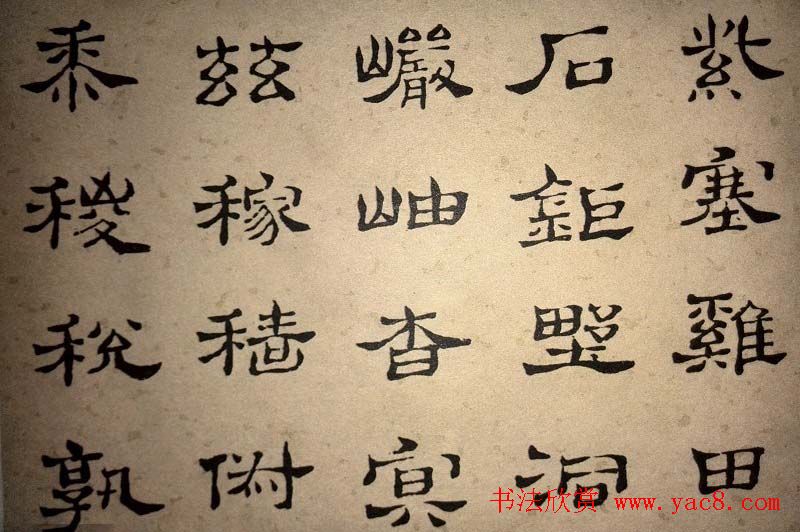 紫塞雞田
石鉅野洞
巗岫杳冥
茲稼穡俶
黍稷稅孰
书法欣赏 www.yac8.com